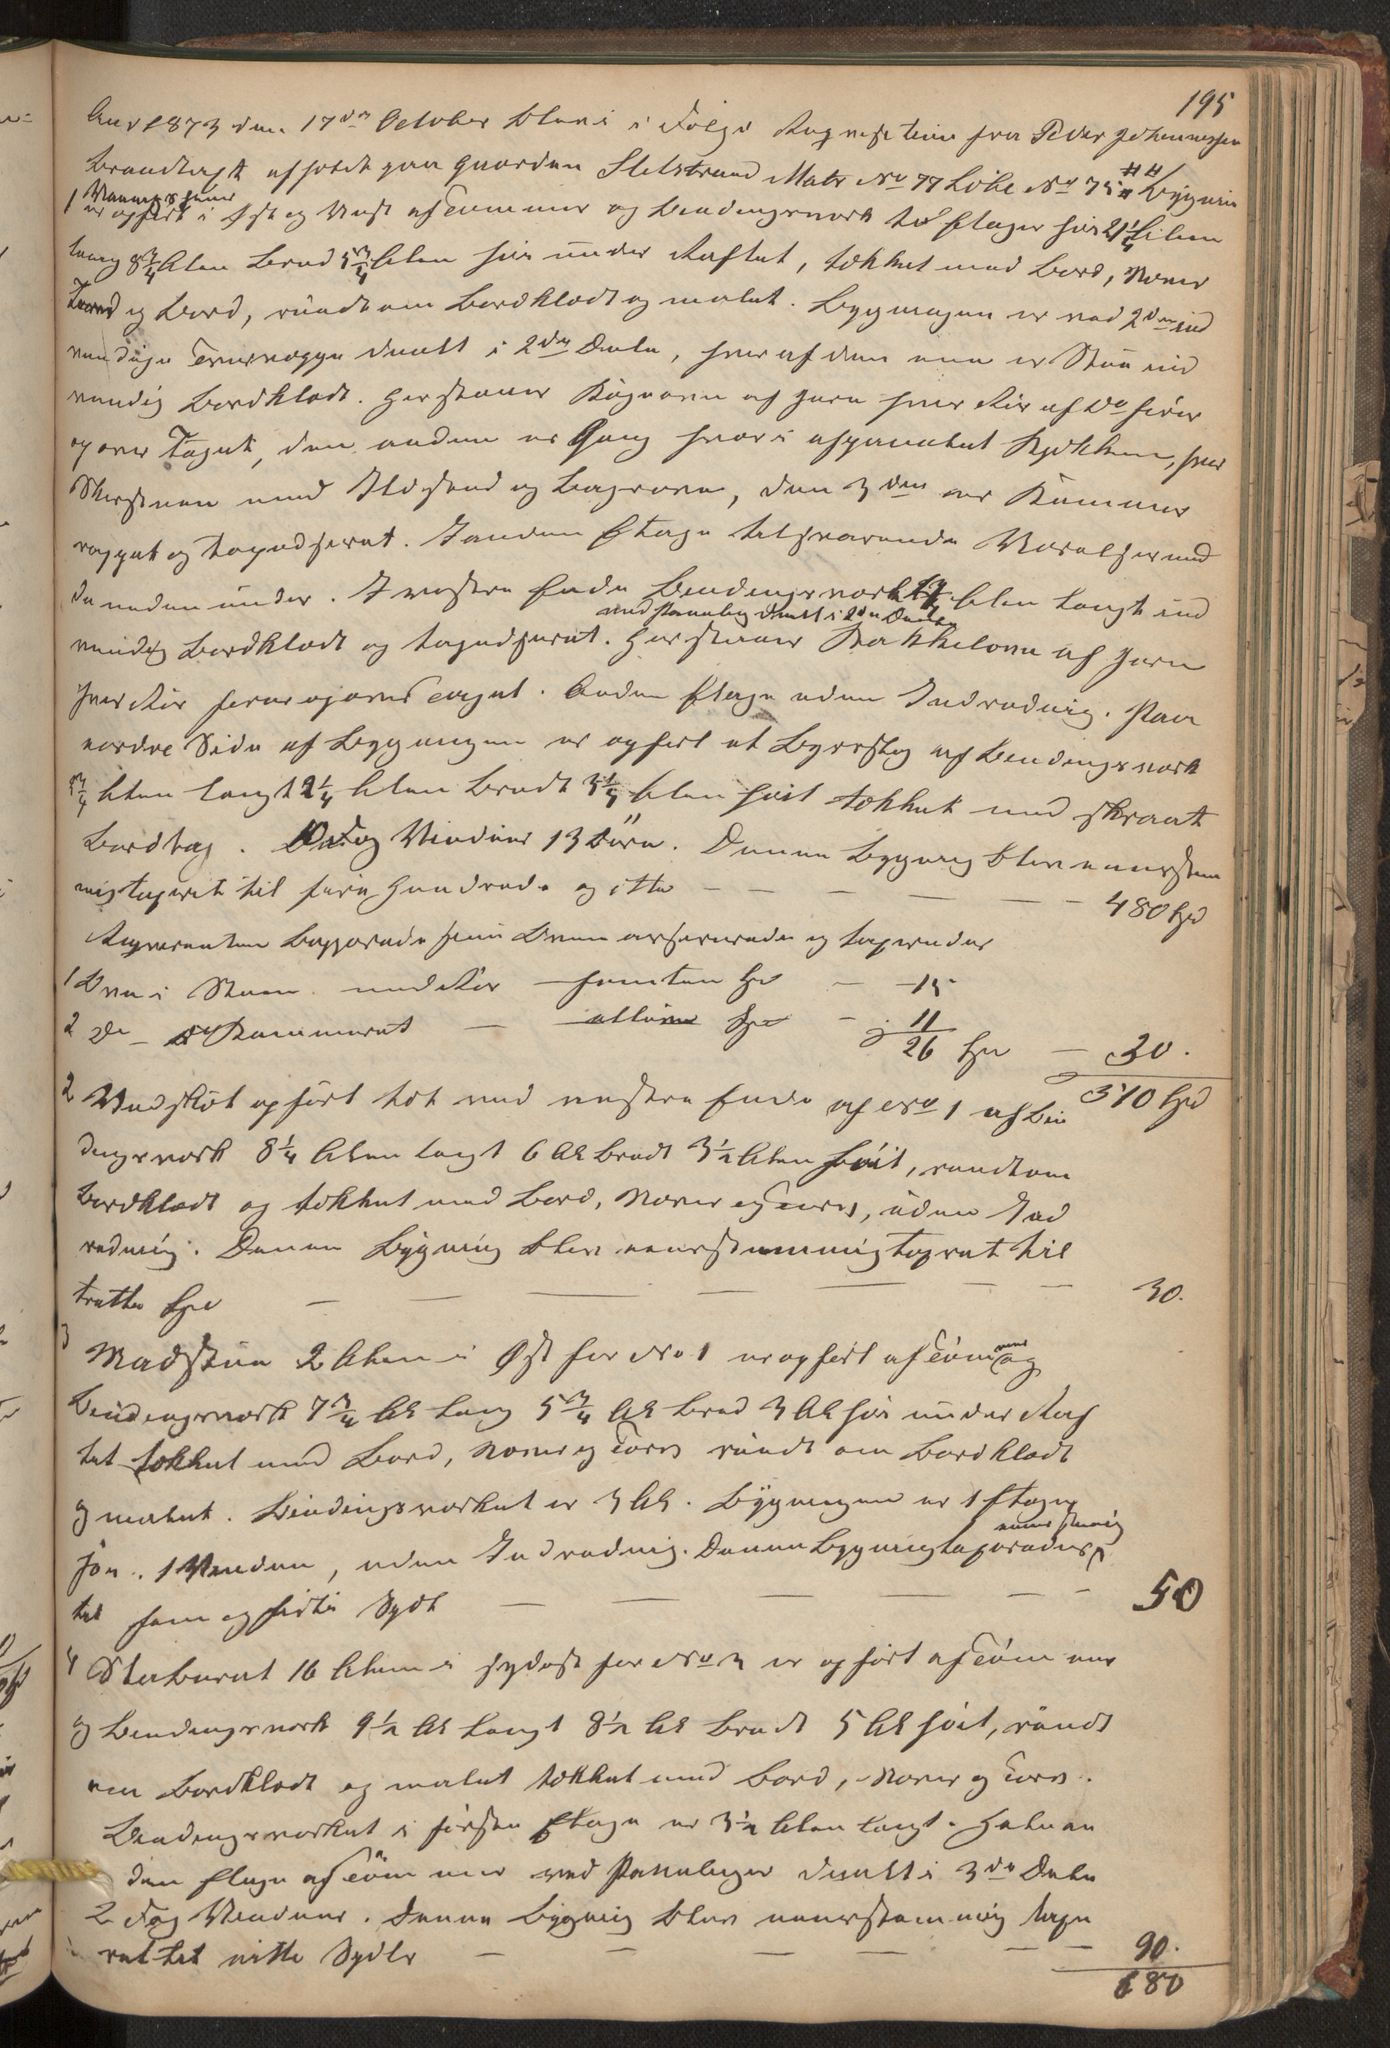 195
Aar 1873 den 17de October blev i Følge Reqvisition fra Peder Johannessen
Brandtaxt afholdt paa Gaarden Sletstrand Matr No 77 Løbe No 75 ## Bygnin
1 Vaaningshuus
er opført i Øst og Vest af Tømmer og Bindingsværk to Etager hvis 21 1/4 Alen
lang 8 3/4 Alen bred 5 3/4 Alen høi under Raftet, tækket med Bord, Næver
Torv og Bord, rundt om Bordklædt og malet. Bygningen er ved 2de ind
vendige Tværvægge deelt i 3de Dele, hver af dem ene er Stue ind
vendig Bordklædt. Her staaer Kogeovn af Jern hver Rør af Do fører
op over Taget, den anden er Gang hvori afpanelet Kjøkken, hver
Skorsteen med Ildsted og Bagerovn, den 3die er Kammer
rappet og tapedseret. I anden Etage tilsvarende Værelser med
de neden under. I vestre Ende Bindingsværk Alen langt ind
ved Paneling deelt i 2de Dele
vendig Bordklædt og tapedseret. Her staaer Kakkelovn af Jern
hver Rør fører op over Taget. Anden Etage uden Indredning. Paa
nordre Side af Bygningen er opført et Byslag af Bindingsværk
3/4 Alen langt 2 1/4 Alen bredt 3 1/4 Alen høit tækket med skraat
Bordtag. Fag Vinduer 13 Døre. Denne Bygning blev eensstem
mig taxeret til fire hundrede og otti — — — — 480 Spd
Reqvirenten begjærede sine Ovne asserurede og taxerede
1 Ovn i Stuen med Rør — femten Spd — 15
2 Do — Kammeret — elleve Spd — 11
26 Spd — 30.
510 Spd
2 Vedskot opført tæt ved vestre Ende af No 1 af Bin
dingsværk 8 1/4 Alen langt 6 Al bredt 3 1/2 Alen høit, rundt om
Bordklædt og tækket med Bord, Næver og Torv, uden Ind
redning. Denne Bygning blev eensstemmig taxeret til
tretti Spd — — — — — — 30.
3
Madstue 2 Alen i Øst for No 1 er opført af Tømmer og
Bindingsværk 7 3/4 Al lang 5 3/4 Al bred 3 Al høi under Raf
tet tækket med Bord, Næver og Torv rundt om Bordklædt
og malet. Bindingsværket er 3 Al. Bygningen er 1 Etage
eensstemmig
høi. 1 Vindue, uden Indredning. Denne Bygning taxeredes
til fem og firti Spdl — — — — — 50
4 Staburet 16 Alen i sydost for No 3 er opført af Tømmer
og Bindingsværk 9 1/2 Al langt 8 1/2 Al bredt 5 Al høit, rundt
om Bordklædt og malet tækket med Bord, Næver og Torv.
Bindingsværket i første Etage er 3 1/2 Alen langt. Hele an
den Etage af Tømmer ved Panelinger deelt i 3de Dele
2 Fag Vinduer. Denne Bygning blev eensstemmig taxe
ret til nitti Spdlr — — — — — 90.
680